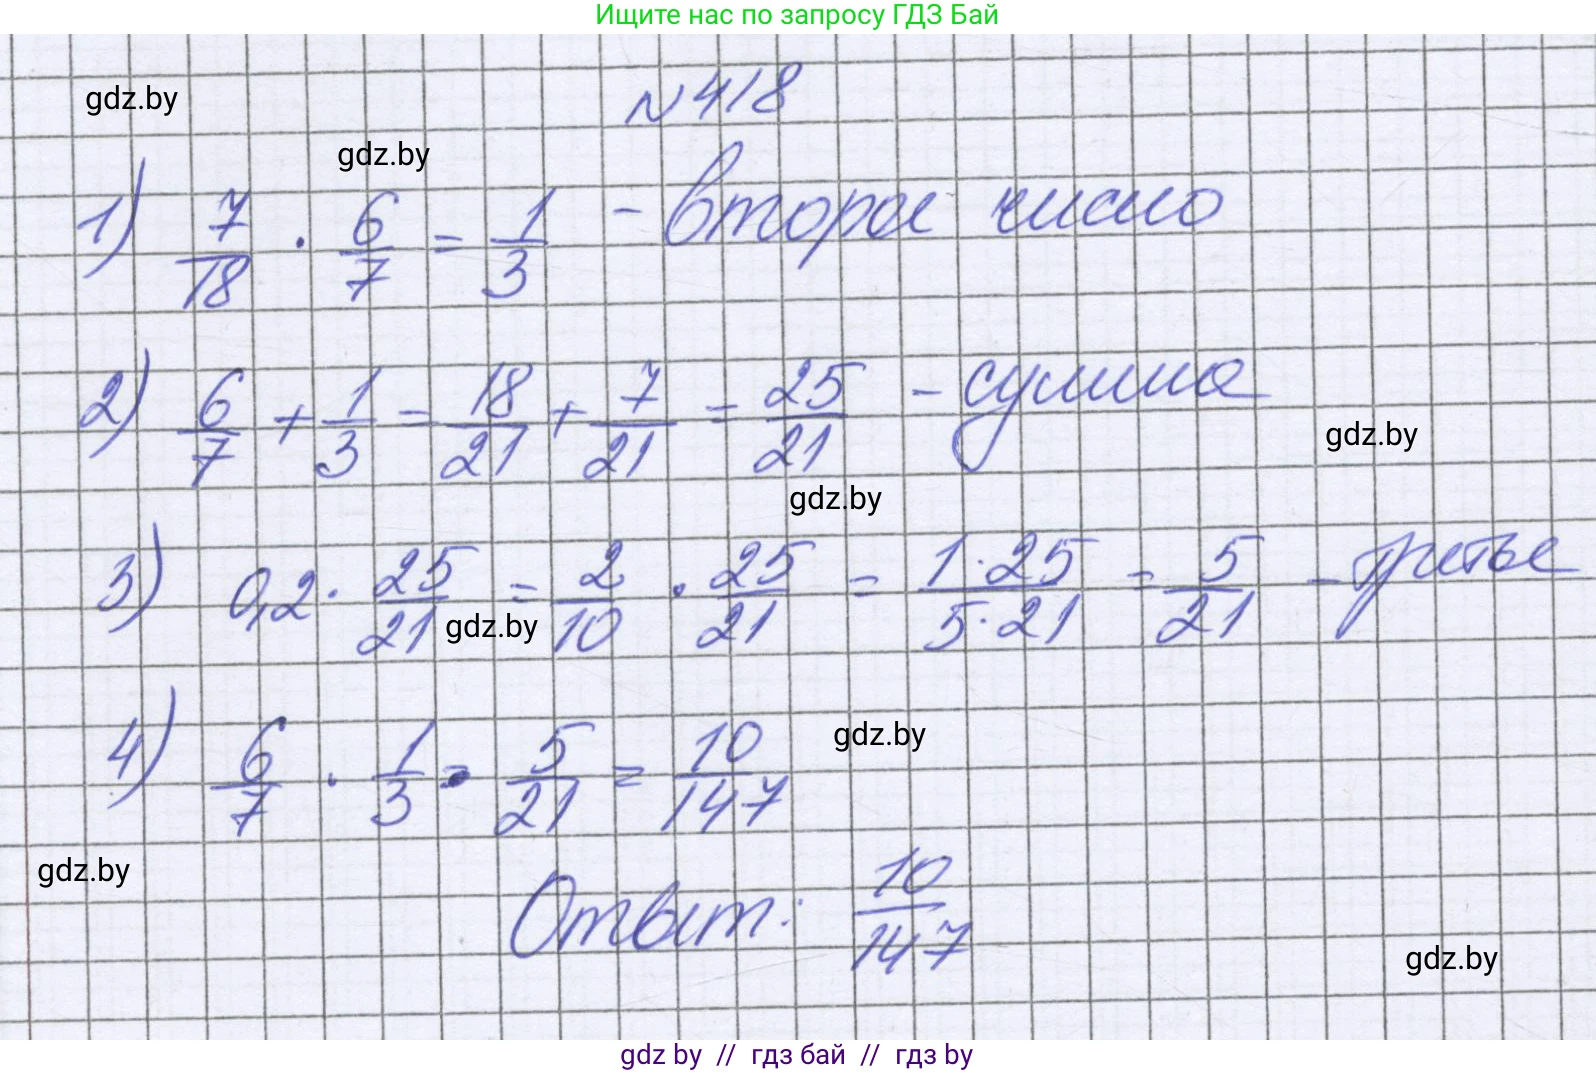 Ищите нас по запросу ГДЗ Бай
№418
gdz.by
gdz.by
1) 7/18 · 6/7 = 1/3 - второе число
2) 6/7 + 1/3 = 18/21 + 7/21 = 25/21 - сумма
gdz.by
gdz.by
3) 0,2 · 25/21 = 2/10 · 25/21 = 1·25/5·21 = 5/21 - третье
gdz.by
4) 6/7 · 1/3 · 5/21 = 10/147
gdz.by
gdz.by
Ответ: 10/147
gdz.by
gdz by // гдз бай // гдз by